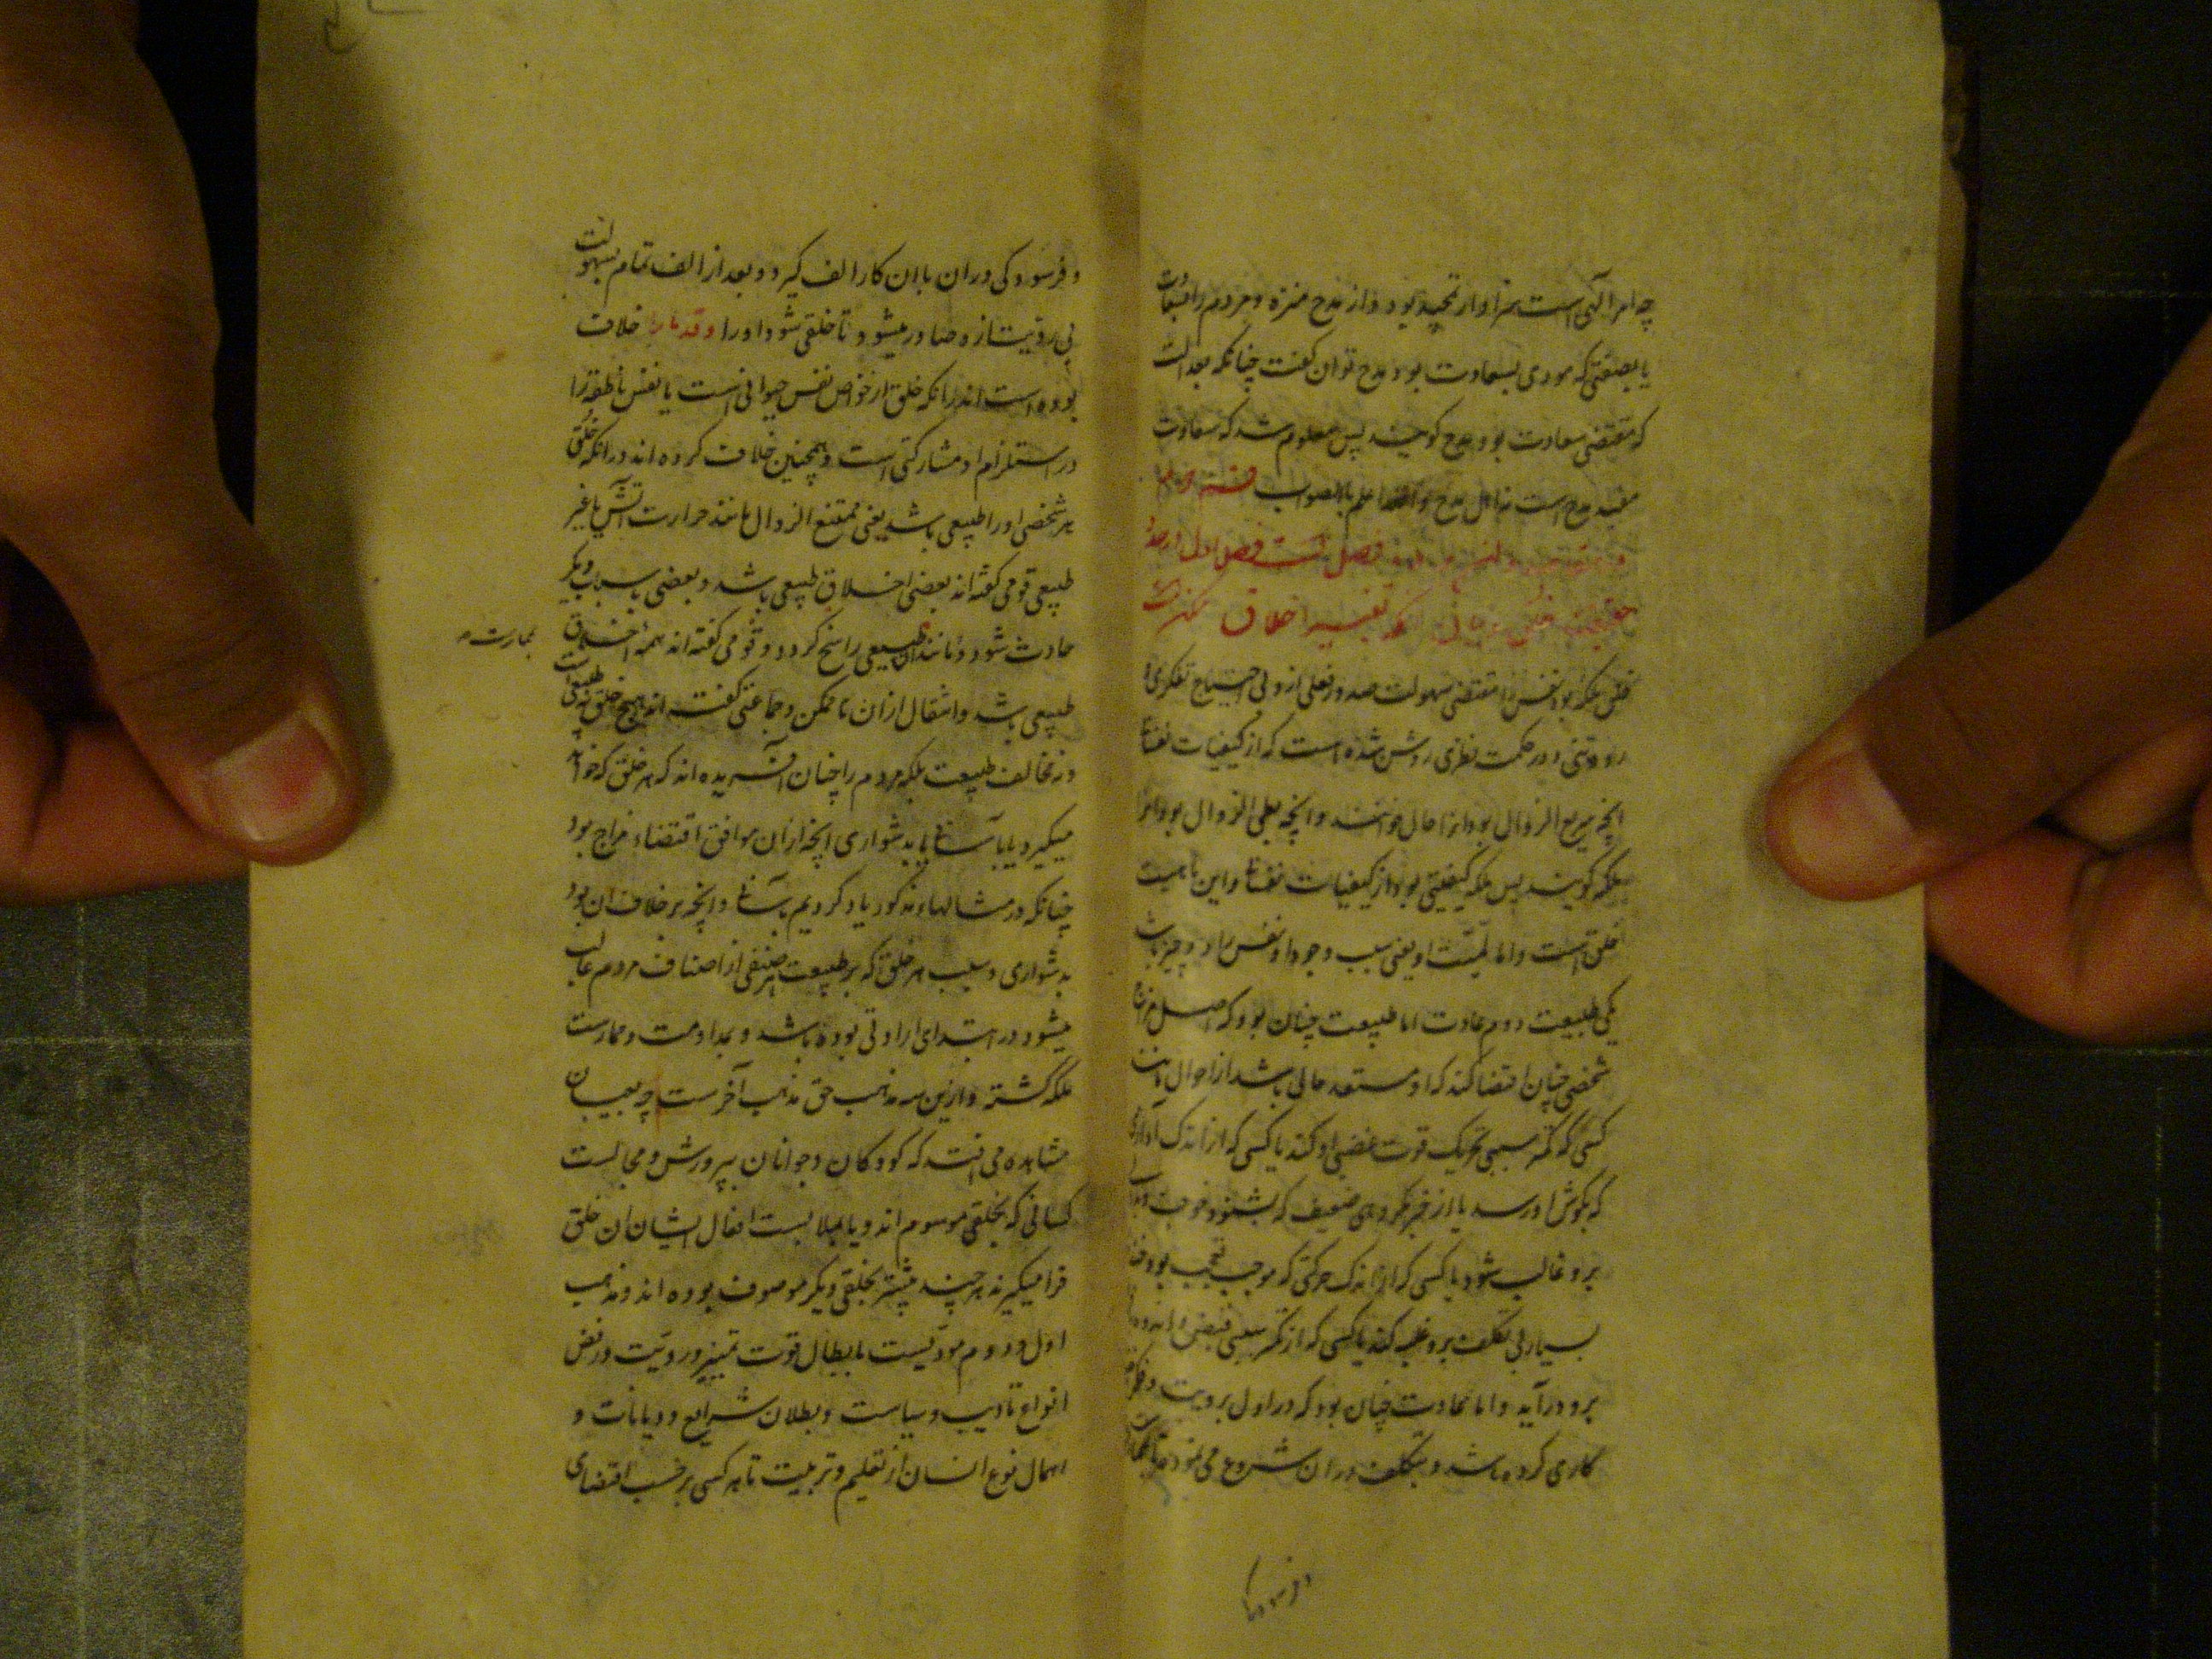 چه امر الهی است سزاوار تمجید بود و از مدح منزه و مردم را بسعادت
یا بصفتی که مودی بسعادت بود مدح توان گفت چنانکه بعدالت
که مقتضی سعادت بود مدح گویند پس معلوم شد که سعادت
مفید مدح است نه اهل مدح والله اعلم بالصواب قسم دوم
فصل است فصل اول در حد
خلق تغییر اخلاق ممکن است
خلق ملکه بود نفس را مقتضی سهولت صدور فعلی ازو بی احتیاج تفکری و
رویتی و در حکمت نظری روشن شده است که از کیفیات نفسانی
انچه سریع الزوال بود انرا حال خوانند و انچه بطی الزوال بود انرا
ملکه گویند پس ملکه کیفیتی بود از کیفیات نفسانی و این ماهیت
خلق است و اما لمیت او یعنی سبب وجود او نفس را دو چیز باشد
یکی طبیعت دوم عادت اما طبیعت چنان بود که اصل مزاج
شخصی چنان اقتضا کند که او مستعد حالی باشد از احوال مانند
کسی که کمتر سببی تحریک قوت غضبی او کند یا کسی که از اندک آوازی
که بگوش او رسد یا از خبر مکروهی ضعیف که بشنود خوف و بددلی
برو غالب شود یا کسی که از اندک حرکتی که موجب تعجب بود
بسیار بی تکلف برو غلبه کند یا کسی که از کمتر سببی قبض و اندوه
برو درآید و اما عادت چنان بود که در اول برویت و فکر
کاری کرده باشد و بتکلف دران شروع می نمود تا بممارست
و فرسودگی
و فرسودگی دران باان کار الف گیرد و بعد از الف تمام بسهولت
بی رویت ازو صادر میشود تا خلقی شود او را و قدما را خلاف
بوده است اندرانکه خلق از خواص نفس حیوانی است یا نفس ناطقه را
در استلزام او مشارکتی است و همچنین خلاف کرده اند در انکه خلق
هر شخصی او را طبیعی باشد یعنی ممتنع الزوال مانند حرارت آتش یا غیر
طبیعی قومی گفته اند بعضی اخلاق طبیعی باشد و بعضی باسباب دیگر
حادث شود و مانند طبیعی راسخ گردد و قومی گفته اند همه اخلاق
بمارست
طبیعی باشد و انتقال ازان ناممکن و جماعتی گفته اند هیچ خلق نه طبیعی است
و نه مخالف طبیعت بلکه مردم را چنان آفریده اند که هر خلق که خواهد
میگیرد یا بآسانی یا بدشواری انچه ازان موافق اقتضاء مزاج بود
چنانکه در مثالهاء مذکور یاد کردیم بآسانی و انچه برخلاف ان بود
بدشواری و سبب هر خلق که بر طبیعت هر صنفی از اصناف مردم غالب
میشود در ابتدای ارادتی بوده باشد و بمداومت و ممارست
ملکه گشته و ازین سه مذهب حق مذهب آخرست چه بعیان
مشاهده می افتد که کودکان و جوانان بپرورش و مجالست
کسانی که بخلقی موسوم اند و یا بملابست افعال ایشان ان خلق
فرا میگیرند هر چند پیشتر بخلقی دیگر موصوف بوده اند و مذهب
اول و دوم مودیست بابطال قوت تمییز و رویت و رفض
انواع تادیب و سیاست و بطلان شرایع و دیانات و
اهمال نوع انسان از تعلیم و تربیت تا هر کسی برحسب اقتضای